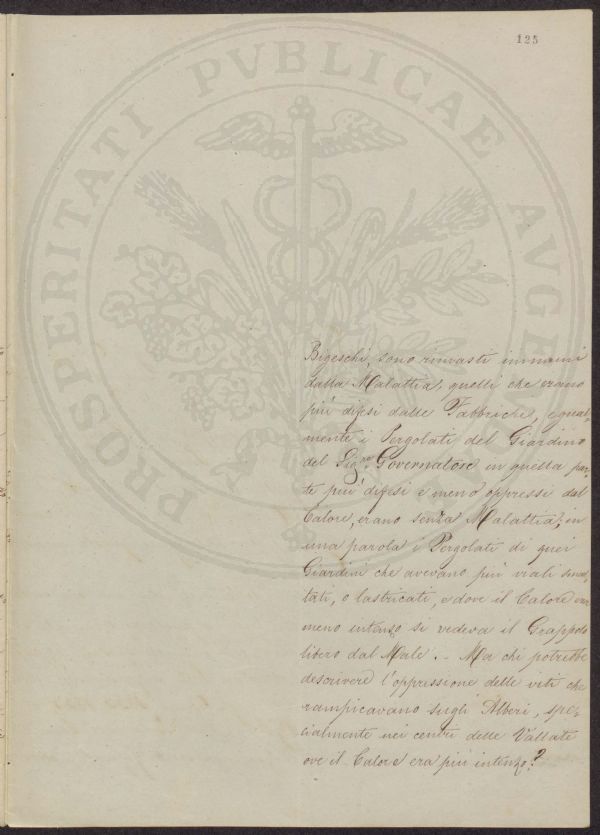 125
PROSPERITATI PVBLICAE AVGENDAE
Bigeschi, sono rimasti immuni
dalla Malattia, quelli che erano
più difesi dalle Fabbriche, egual-
mente i Pergolati del Giardino
del Sig.re Governatore in quella par-
te più difesi e meno oppressi dal
Calore, erano senza Malattia; in
una parola i Pergolati di quei
Giardini che avevano più viali smal-
tati, o lastricati, e dove il Calore era
meno intenzo si vedeva il Grappolo
libero dal Male. - Ma chi potrebbe
descrivere l'oppressione delle viti che
rampicavano sugli Alberi, spe-
cialmente nei centri delle Vallate
ove il Calore era più intenzo?